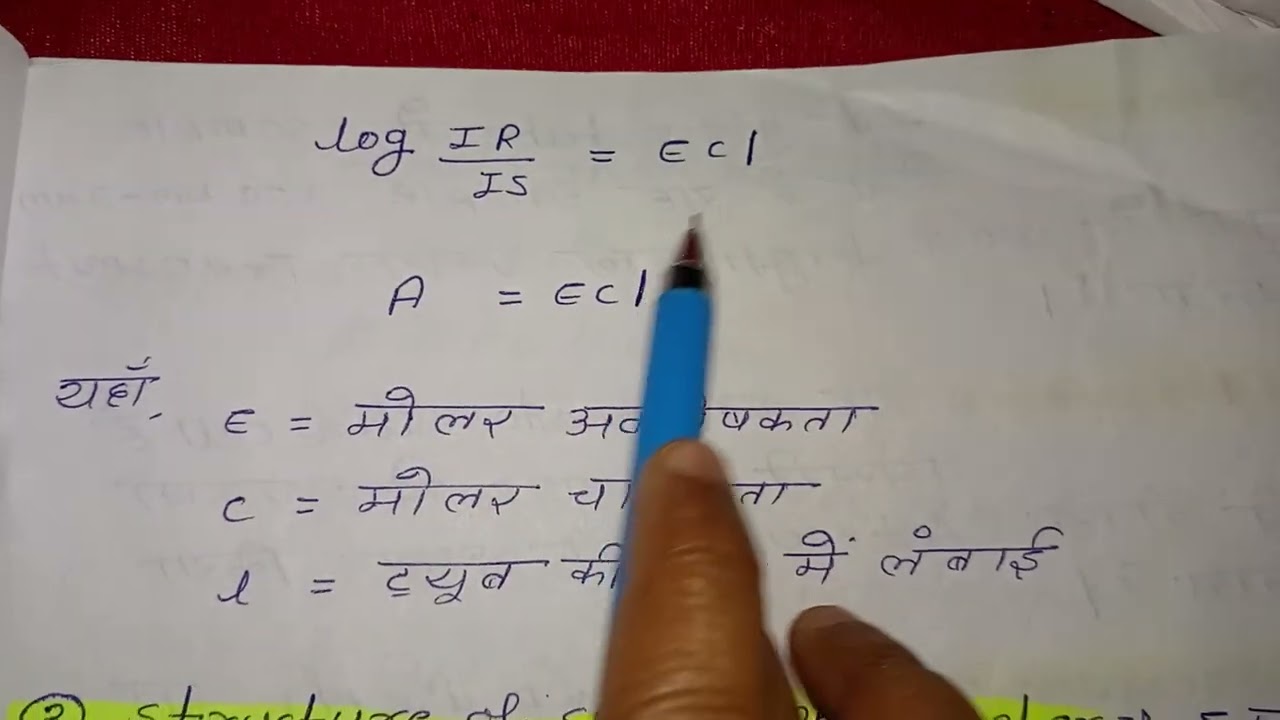 log IR/IS = ∈cl
A = ∈cl
यहाँ,
∈ = मोलर
c = मोलर
l = ट्यूब की में लंबाई
② structure of